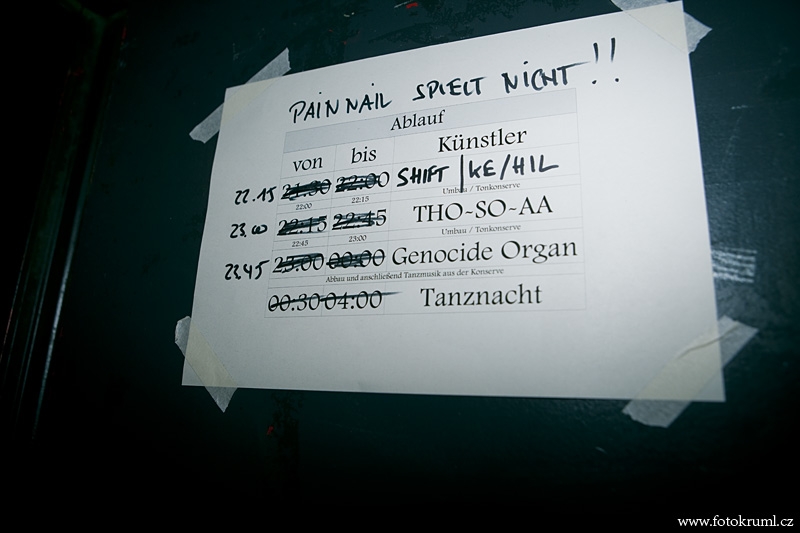 PAIN NAIL SPIELT NICHT!!
Ablauf
von bis Künstler
22.15 21:30 22:00 SHIFT | KE/HIL
22:00 22:15 Umbau / Tonkonserve
23.00 22:15 22:45 THO-SO-AA
22:45 23:00 Umbau / Tonkonserve
23.45 23:00 00:00 Genocide Organ
Abbau und anschließend Tanzmusik aus der Konserve
00:30 04:00 Tanznacht
www.fotokruml.cz